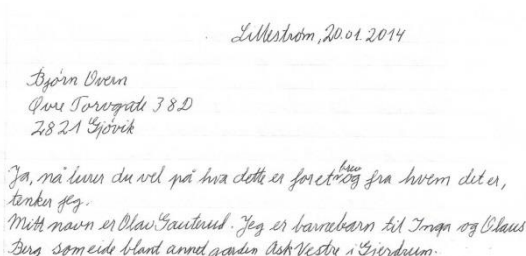 Lillestrøm, 20.01.2014
Bjørn Overn
Øvre Torvgate 38D
2821 Gjøvik
Ja, nå lurer du vel på hva dette er foret brev og fra hvem det er,
tenker jeg.
Mitt navn er Olav Gauterud. Jeg er barnebarn til Inga og Olaus
Berg som eide blant annet garden Ask Vestre i Gjerdrum.